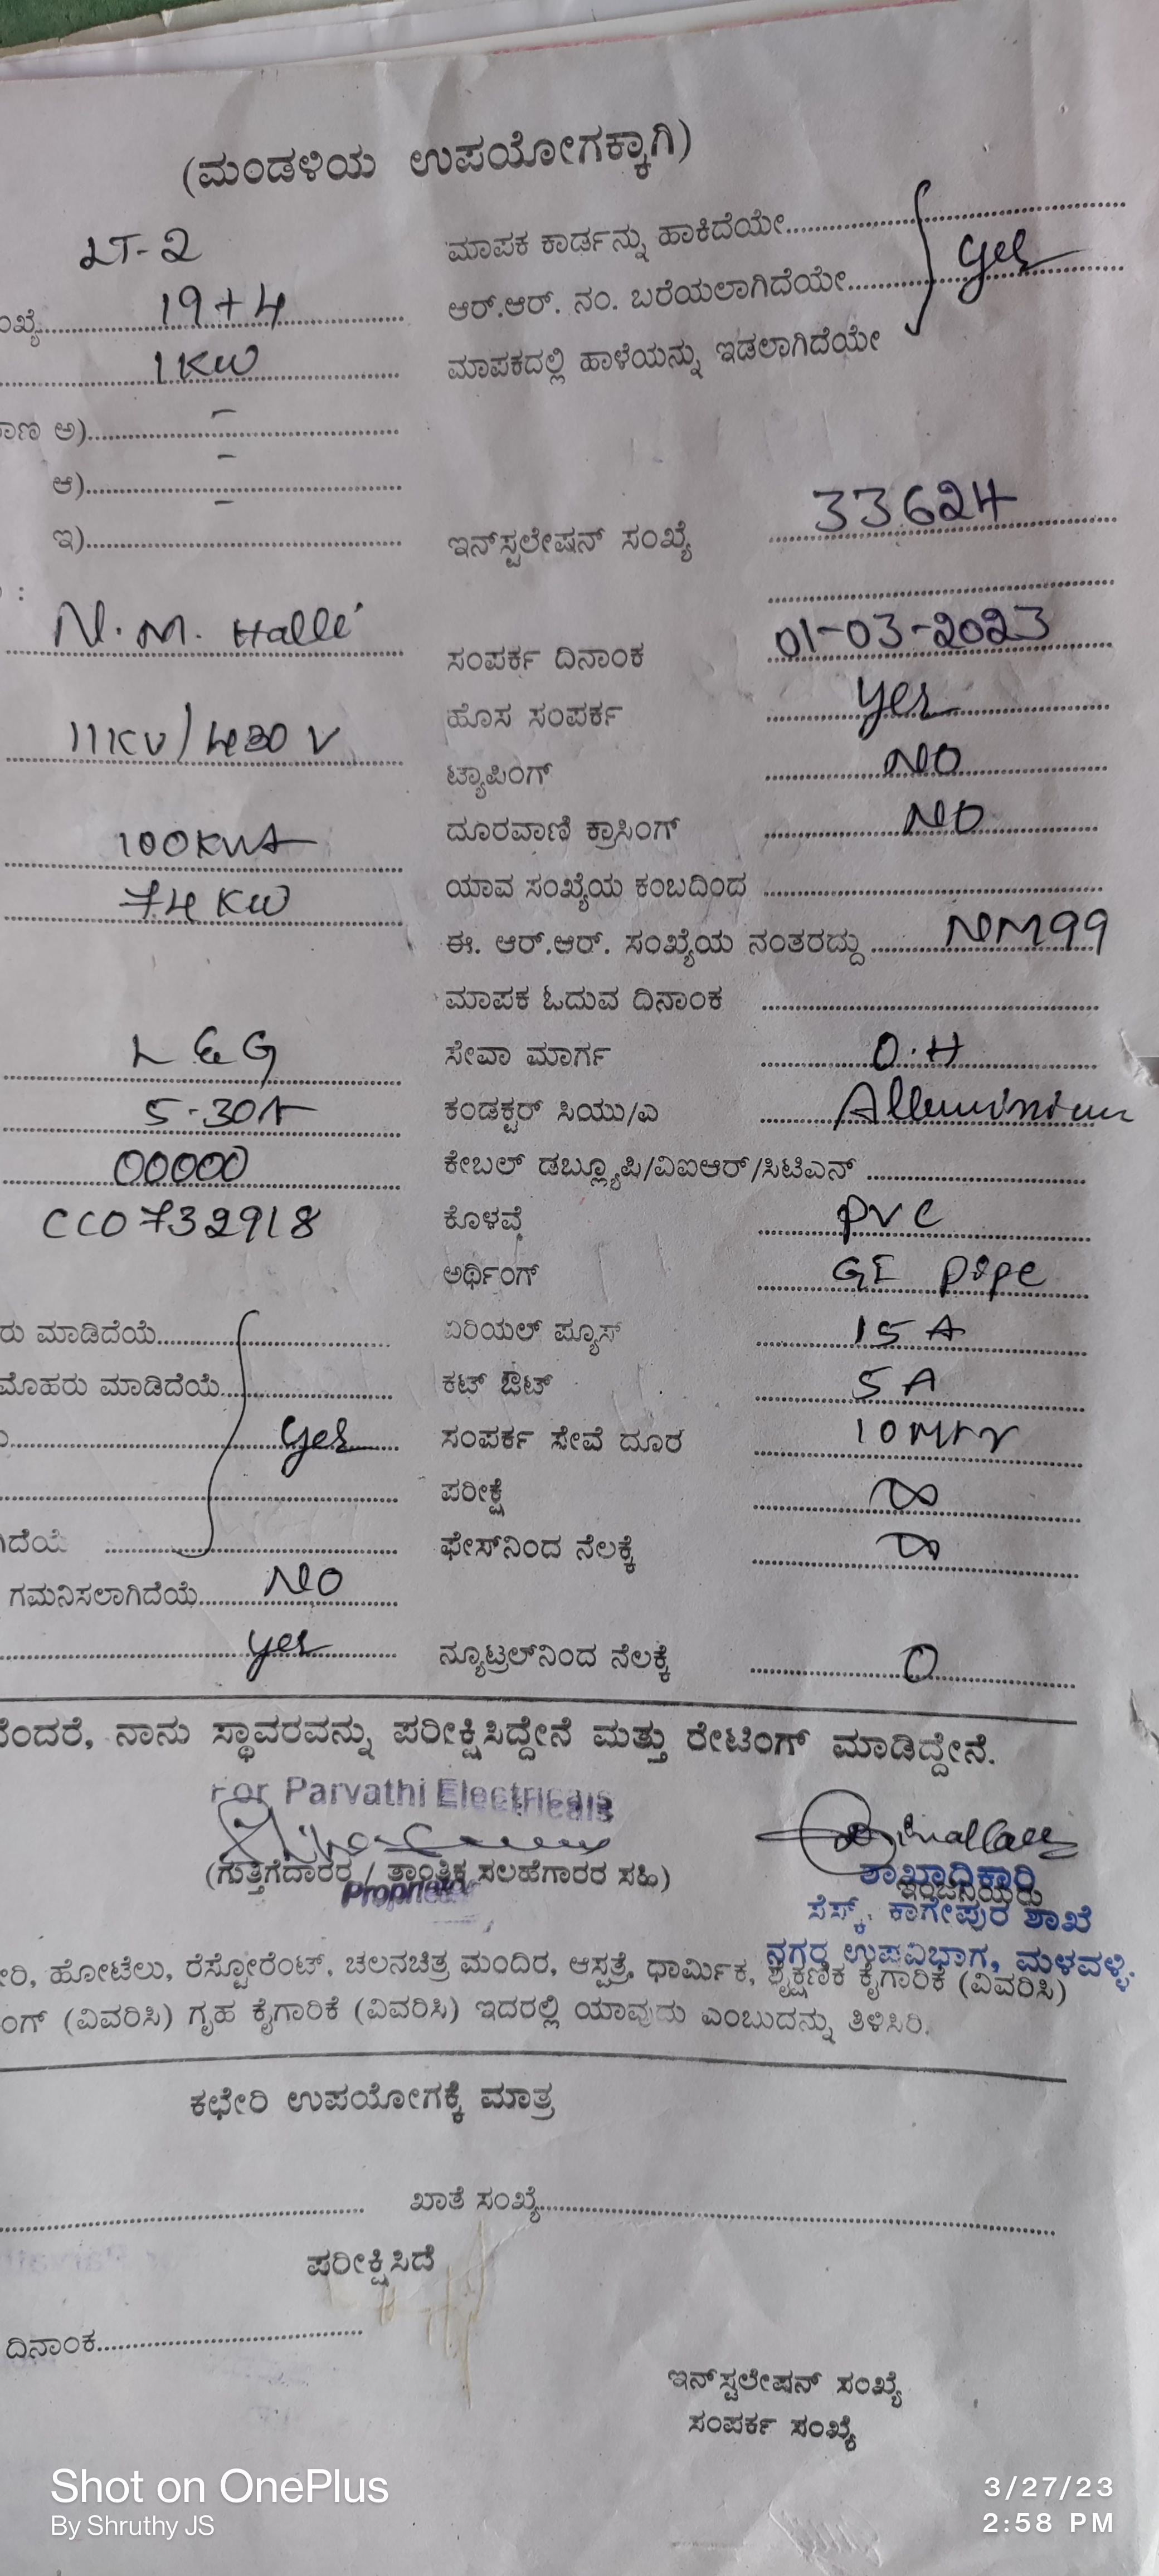 (ಮಂಡಳಿಯ ಉಪಯೋಗಕ್ಕಾಗಿ)
LT-2 ಮಾಪಕ ಕಾರ್ಡನ್ನು ಹಾಕಿದೆಯೇ
19+4 ಆರ್.ಆರ್. ನಂ. ಬರೆಯಲಾಗಿದೆಯೇ yes
1KW ಮಾಪಕದಲ್ಲಿ ಹಾಳೆಯನ್ನು ಇಡಲಾಗಿದೆಯೇ
ಅ) -
ಆ) -
ಇ) - ಇನ್‌ಸ್ಟಲೇಷನ್ ಸಂಖ್ಯೆ 33624
N.M. Halli ಸಂಪರ್ಕ ದಿನಾಂಕ 01-03-2023
ಹೊಸ ಸಂಪರ್ಕ yes
11KV/430 V ಟ್ಯಾಪಿಂಗ್ NO
100KVA ದೂರವಾಣಿ ಕ್ರಾಸಿಂಗ್ NO
74 KW ಯಾವ ಸಂಖ್ಯೆಯ ಕಂಬದಿಂದ
ಈ. ಆರ್.ಆರ್. ಸಂಖ್ಯೆಯ ನಂತರದ್ದು NM99
ಮಾಪಕ ಓದುವ ದಿನಾಂಕ
L&G ಸೇವಾ ಮಾರ್ಗ O.H
5-30A ಕಂಡಕ್ಟರ್ ಸಿಯು/ಎ
00000 ಕೇಬಲ್ ಡಬ್ಲ್ಯೂಪಿ/ವಿಐಆರ್/ಸಿಟಿಎನ್
CC0732918 ಕೊಳವೆ PVC
ಅರ್ಥಿಂಗ್ GI Pipe
ರು ಮಾಡಿದೆಯೆ ಏರಿಯಲ್ ಪ್ಯೂಸ್ 15 A
ಮೊಹರು ಮಾಡಿದೆಯೆ ಕಟ್ ಔಟ್ 5 A
yes ಸಂಪರ್ಕ ಸೇವೆ ದೂರ 10 Mtr
ಪರೀಕ್ಷೆ ∞
ಫೇಸ್‌ನಿಂದ ನೆಲಕ್ಕೆ ∞
ಗಮನಿಸಲಾಗಿದೆಯೆ NO
yes ನ್ಯೂಟ್ರಲ್‌ನಿಂದ ನೆಲಕ್ಕೆ 0
ನೆಂದರೆ, ನಾನು ಸ್ಥಾವರವನ್ನು ಪರೀಕ್ಷಿಸಿದ್ದೇನೆ ಮತ್ತು ರೇಟಿಂಗ್ ಮಾಡಿದ್ದೇನೆ.
For Parvathi Electricals
(ಗುತ್ತಿಗೆದಾರರ / ತಾಂತ್ರಿಕ ಸಲಹೆಗಾರರ ಸಹಿ)
Proprietor
ಶಾಖಾಧಿಕಾರಿ
ಇಂಜಿನಿಯರು
ಸೆಸ್ಕ್, ಕಾಗೇಪುರ ಶಾಖೆ
ನಗರ ಉಪವಿಭಾಗ, ಮಳವಳ್ಳಿ.
ರಿ, ಹೋಟೆಲು, ರೆಸ್ಟೋರೆಂಟ್, ಚಲನಚಿತ್ರ ಮಂದಿರ, ಆಸ್ಪತ್ರೆ, ಧಾರ್ಮಿಕ, ಶೈಕ್ಷಣಿಕ ಕೈಗಾರಿಕೆ (ವಿವರಿಸಿ)
ಂಗ್ (ವಿವರಿಸಿ) ಗೃಹ ಕೈಗಾರಿಕೆ (ವಿವರಿಸಿ) ಇದರಲ್ಲಿ ಯಾವುದು ಎಂಬುದನ್ನು ತಿಳಿಸಿರಿ.
ಕಛೇರಿ ಉಪಯೋಗಕ್ಕೆ ಮಾತ್ರ
ಖಾತೆ ಸಂಖ್ಯೆ
ಪರೀಕ್ಷಿಸಿದೆ
ದಿನಾಂಕ
ಇನ್‌ಸ್ಟಲೇಷನ್ ಸಂಖ್ಯೆ
ಸಂಪರ್ಕ ಸಂಖ್ಯೆ
Shot on OnePlus
By Shruthy JS
3/27/23
2:58 PM